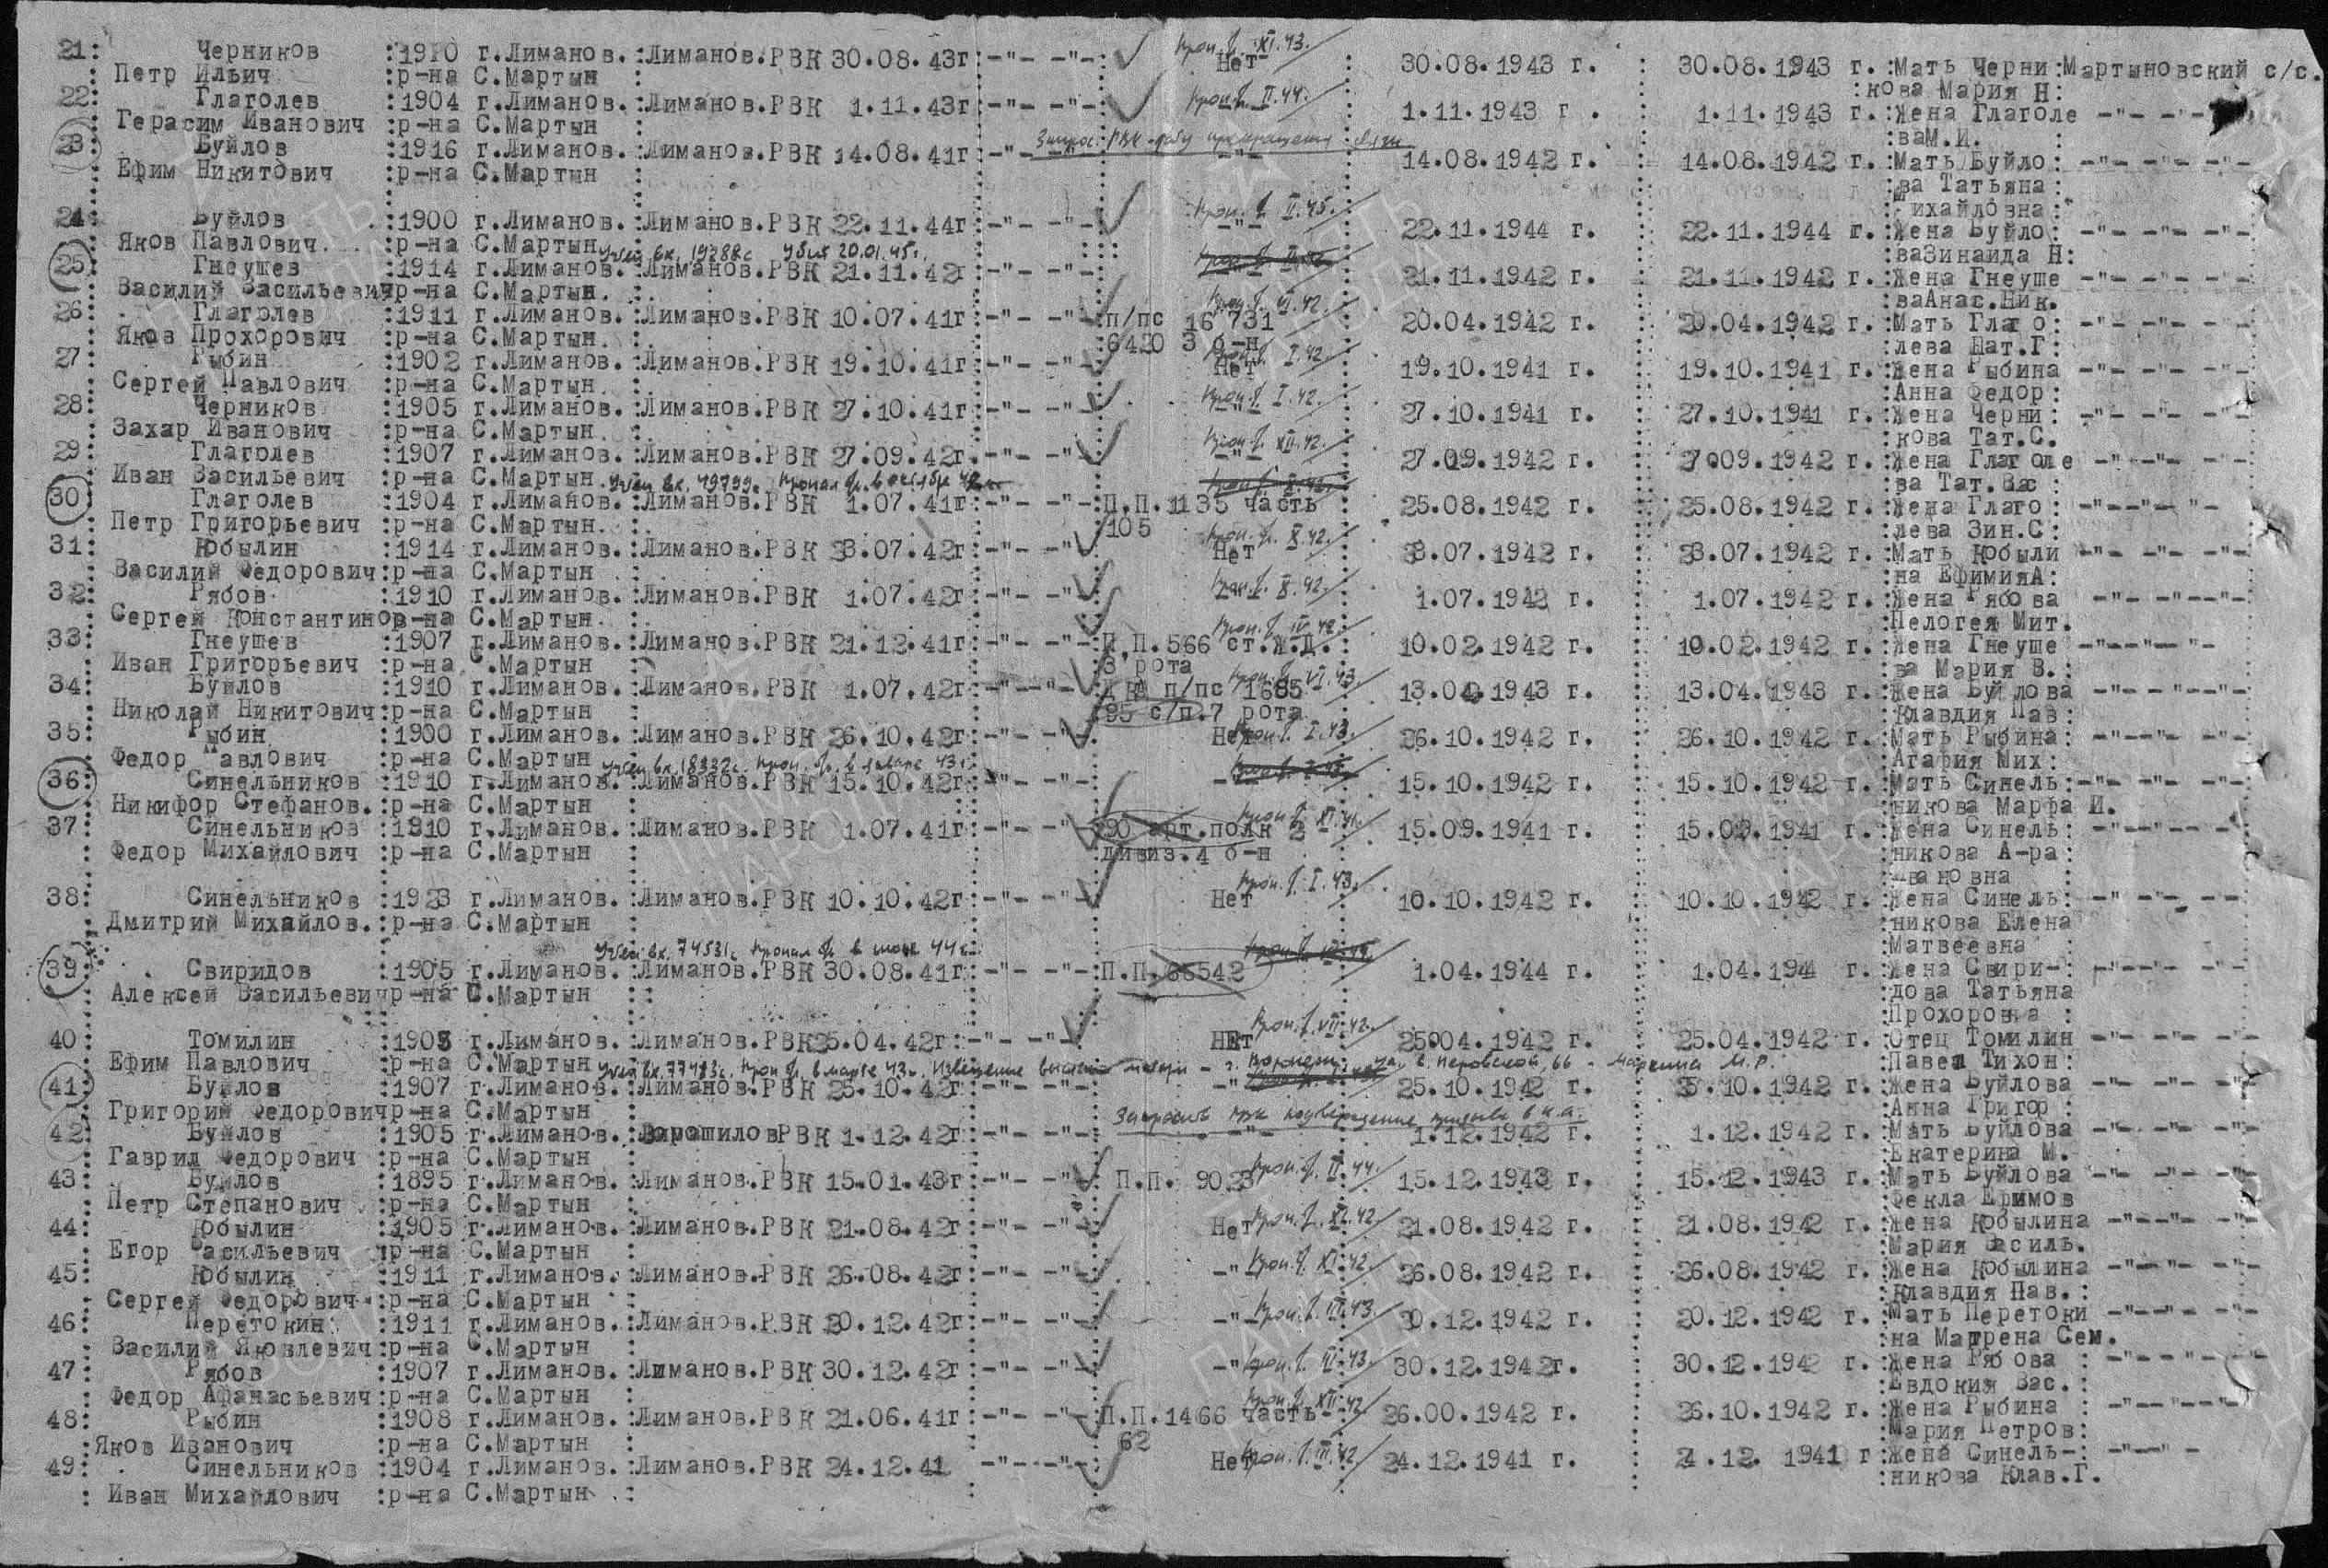 21: Черников :1910 г.Лиманов. :Лиманов.РВК 30.08.43г :-"- -"-: Проп. б/в XI.43. Нет : 30.08.1943 г. : 30.08.1943 г. :Мать Черни :Мартыновский с/с.
Петр Ильич :р-на С.Мартын :кова Мария Н:
22: Глаголев :1904 г.Лиманов. :Лиманов.РВК 1.11.43г :-"- -"-: Проп. б/в II.44. 1.11.1943 г. : 1.11.1943 г. :Жена Глаголе -"- -"-
Герасим Иванович :р-на С.Мартын :ваМ.И.
23: Буйлов :1916 г.Лиманов. :Лиманов.РВК 14.08.41г :-"- 14.08.1942 г. : 14.08.1942 г. :Мать Буйло: -"- -"- -"-
Ефим Никитович :р-на С.Мартын :ва Татьяна :
:Михайловна :
24: Буйлов :1900 г.Лиманов. :Лиманов.РВК 22.11.44г :-"- -"- Проп. б/в II.45. -"- 22.11.1944 г. : 22.11.1944 г. :Жена Буйло: -"- -"- -"-
Яков Павлович. :р-на С.Мартын Учен вх. 19288с Убит 20.01.45г. :ваЗинаида Н:
25: Гнеушев :1914 г.Лиманов. :Лиманов.РВК 21.11.42г :-"- -"-: 21.11.1942 г. : 21.11.1942 г. :Жена Гнеуше -"- -"- -"-
Василий Васильевич р-на С.Мартын. :ваАнас.Ник.
26: Глаголев :1911 г.Лиманов. :Лиманов.РВК 10.07.41г :-"- -"- :п/пс 16 731 Проп. б/в VI.42. 20.04.1942 г. : 20.04.1942 г. :Мать Глаго: -"- -"- -"-
Яков Прохорович :р-на С.Мартын. :6420 3 о-н :лева Нат.Г:
27: Рыбин :1902 г.Лиманов. :Лиманов.РВК 19.10.41г :-"- -"- Нет I.42. 19.10.1941 г. : 19.10.1941 г. :Жена Рыбина -"- -"- -"-
Сергей Павлович :р-на С.Мартын :Анна Федор:
28: Черников :1905 г.Лиманов. :Лиманов.РВК 27.10.41г :-"- -"- Проп. б/в I.42. 27.10.1941 г. : 27.10.1941 г. :Жена Черни: -"- -"- -"-
Захар Иванович :р-на С.Мартын :кова Тат.С.
29: Глаголев :1907 г.Лиманов. :Лиманов.РВК 27.09.42г. :-"- -"- Проп. б/в XII.42. -"- 27.09.1942 г. : 27.09.1942 г. :Жена Глаголе -"- -"- -"-
Иван Васильевич :р-на С.Мартын Учен вх. 49799с Пропал б/в в октябре 42 :ва Тат.Вас :
30: Глаголев :1904 г.Лиманов. :Лиманов.РВК 1.07.41г :-"- -"-:П.П.1135 часть 25.08.1942 г. : 25.08.1942 г. :Жена Глаго: -"- -"- -"-
Петр Григорьевич :р-на С.Мартын. :105 :лева Зин.С:
31: Кобылин :1914 г.Лиманов. :Лиманов.РВК 33.07.42г :-"- -"- Нет Проп. б/в X.42. 33.07.1942 г. : 33.07.1942 г. :Мать Кобыли -"- -"- -"-
Василий Федорович:р-на С.Мартын :на ЕфимияА:
32: Рябов :1910 г.Лиманов. :Лиманов.РВК 1.07.42г :-"- -"- Проп. б/в X.42. 1.07.1942 г. : 1.07.1942 г. :Жена Рябова -"- -"- -"-
Сергей Константинов р-на С.Мартын. :Пелогея Мит.
33: Гнеушев :1907 г.Лиманов. :Лиманов.РВК 21.12.41г :-"- -"-:П.П.566 ст.Ж.Д. Проп. б/в IV.42. 10.02.1942 г. : 10.02.1942 г. :Жена Гнеуше -"- -"- -"-
Иван Григорьевич :р-на С.Мартын :3 рота :ва Мария В.:
34: Буйлов :1910 г.Лиманов. :Лиманов.РВК 1.07.42г :-"- -"- ДКА п/пс 1685 Проп. б/в VI.43. 13.04.1943 г. : 13.04.1943 г. :Жена Буйлова -"- -"- -"-
Николай Никитович:р-на С.Мартын :95 с/п.7 рота :Клавдия Пав:
35: Рыбин :1900 г.Лиманов. :Лиманов.РВК 26.10.42г :-"- -"- Нет Проп. б/в I.43. 26.10.1942 г. : 26.10.1942 г. :Мать Рыбина: -"- -"- -"-
Федор Павлович :р-на С.Мартын Учен вх. 18332с. Проп. б/в в январе 43г. :Агафия Мих:
36: Синельников :1910 г.Лиманов. :Лиманов.РВК 15.10.42г :-"- -"- 15.10.1942 г. : 15.10.1942 г. :Мать Синель: -"- -"- -"-
Никифор Стефанов. :р-на С.Мартын :никова Марфа И.
37: Синельников :1910 г.Лиманов. :Лиманов.РВК 1.07.41г :-"- -"- 90 арт.полк 2 Проп. б/в XI.41. 15.09.1941 г. : 15.09.1941 г. :Жена Синель: -"- -"- -"-
Федор Михайлович :р-на С.Мартын :дивиз.4 о-н :никова А-ра:
:Ивановна
38: Синельников :1923 г.Лиманов. :Лиманов.РВК 10.10.42г :-"- -"- Нет Проп. б/в I.43. 10.10.1942 г. : 10.10.1942 г. :Жена Синель: -"- -"- --
Дмитрий Михайлов. :р-на С.Мартын :никова Елена
Учен вх. 74531с Пропал б/в в июне 44г. :Матвеевна
39: Свиридов :1905 г.Лиманов. :Лиманов.РВК 30.08.41г :-"- -"-:П.П.36542 1.04.1944 г. : 1.04.1944 г. :Жена Свири-: -"- -"- -"-
Алексей Васильевич р-на С.Мартын :дова Татьяна
:Прохоровна :
40: Томилин :1903 г.Лиманов. :Лиманов.РВК25.04.42г :-"- -"- НЕт Проп. б/в VII.42. 25.04.1942 г. : 25.04.1942 г. :Отец Томилин -"- -"- -"-
Ефим Павлович :р-на С.Мартын Учен вх. 77483с. Проп б/в в марте 43г. Извещение г. Воронеж, ул. С. Перовской, 66 - Маркина М.Р. :Павел Тихон:
41: Буйлов :1907 г.Лиманов. :Лиманов.РВК 25.10.42г :-"- -"- -" 25.10.1942 г. : 25.10.1942 г. :Жена Буйлова -"- -"- -"-
Григорий Федорович р-на С.Мартын :Анна Григор :
42: Буйлов :1905 г.Лиманов. ВорошиловРВК 1.12.42г :-"- -"-: -"- 1.12.1942 г. : 1.12.1942 г. :Мать Буйлова -"- -"- -"-
Гаврил Федорович :р-на С.Мартын :Екатерина М.
43: Буйлов :1895 г.Лиманов. :Лиманов.РВК 15.01.43г :-"- -"- П.П. 9023 Проп. б/в II.44. 15.12.1943 г. : 15.12.1943 г. :Мать Буйлова -"- -"- -"-
Петр Степанович :р-на С.Мартын :Фекла Ефимов
44: Кобылин :1905 г.Лиманов. :Лиманов.РВК 21.08.42г :-"- -"- Нет Проп. б/в XI.42 21.08.1942 г. : 21.08.1942 г. :Жена Кобылина -"- -"- -"-
Егор Васильевич :р-на С.Мартын :Мария Василь.
45: Кобылин :1911 г.Лиманов. :Лиманов.РВК 26.08.42г :-"- -"- -" Проп. б/в XI.42. 26.08.1942 г. : 26.08.1942 г. :Жена Кобылина -"- -"- -"-
Сергей Федорович :р-на С.Мартын :Клавдия Пав. :
46: Перетокин :1911 г.Лиманов. :Лиманов.РВК 20.12.42г :-"- -"- -" Проп. б/в III.43. 20.12.1942 г. : 20.12.1942 г. :Мать Перетоки -"- -"- -"-
Василий Яковлевич:р-на С.Мартын :на Матрена Сем.
47: Рябов :1907 г.Лиманов. :Лиманов.РВК 30.12.42г :-"- -"- -" Проп. б/в III.43. 30.12.1942г. : 30.12.1942 г. :Жена Рябова : -"- -"- -"-
Федор Афанасьевич:р-на С.Мартын :Евдокия Вас. :
48: Рыбин :1908 г.Лиманов. :Лиманов.РВК 21.06.41г :-"- -"-:П.П.1466 часть Проп. б/в XII.42 26.00.1942 г. : 26.10.1942 г. :Жена Рыбина : -"- -"- -"-
Яков Иванович :р-на С.Мартын 62 :Мария Петров:
49: Синельников :1904 г.Лиманов. :Лиманов.РВК 24.12.41 -"- -"-: Нет Проп. б/в III.42 24.12.1941 г. : 24.12. 1941 г :Жена Синель-: -"- -"-
Иван Михайлович :р-на С.Мартын :никова Клав.Г.